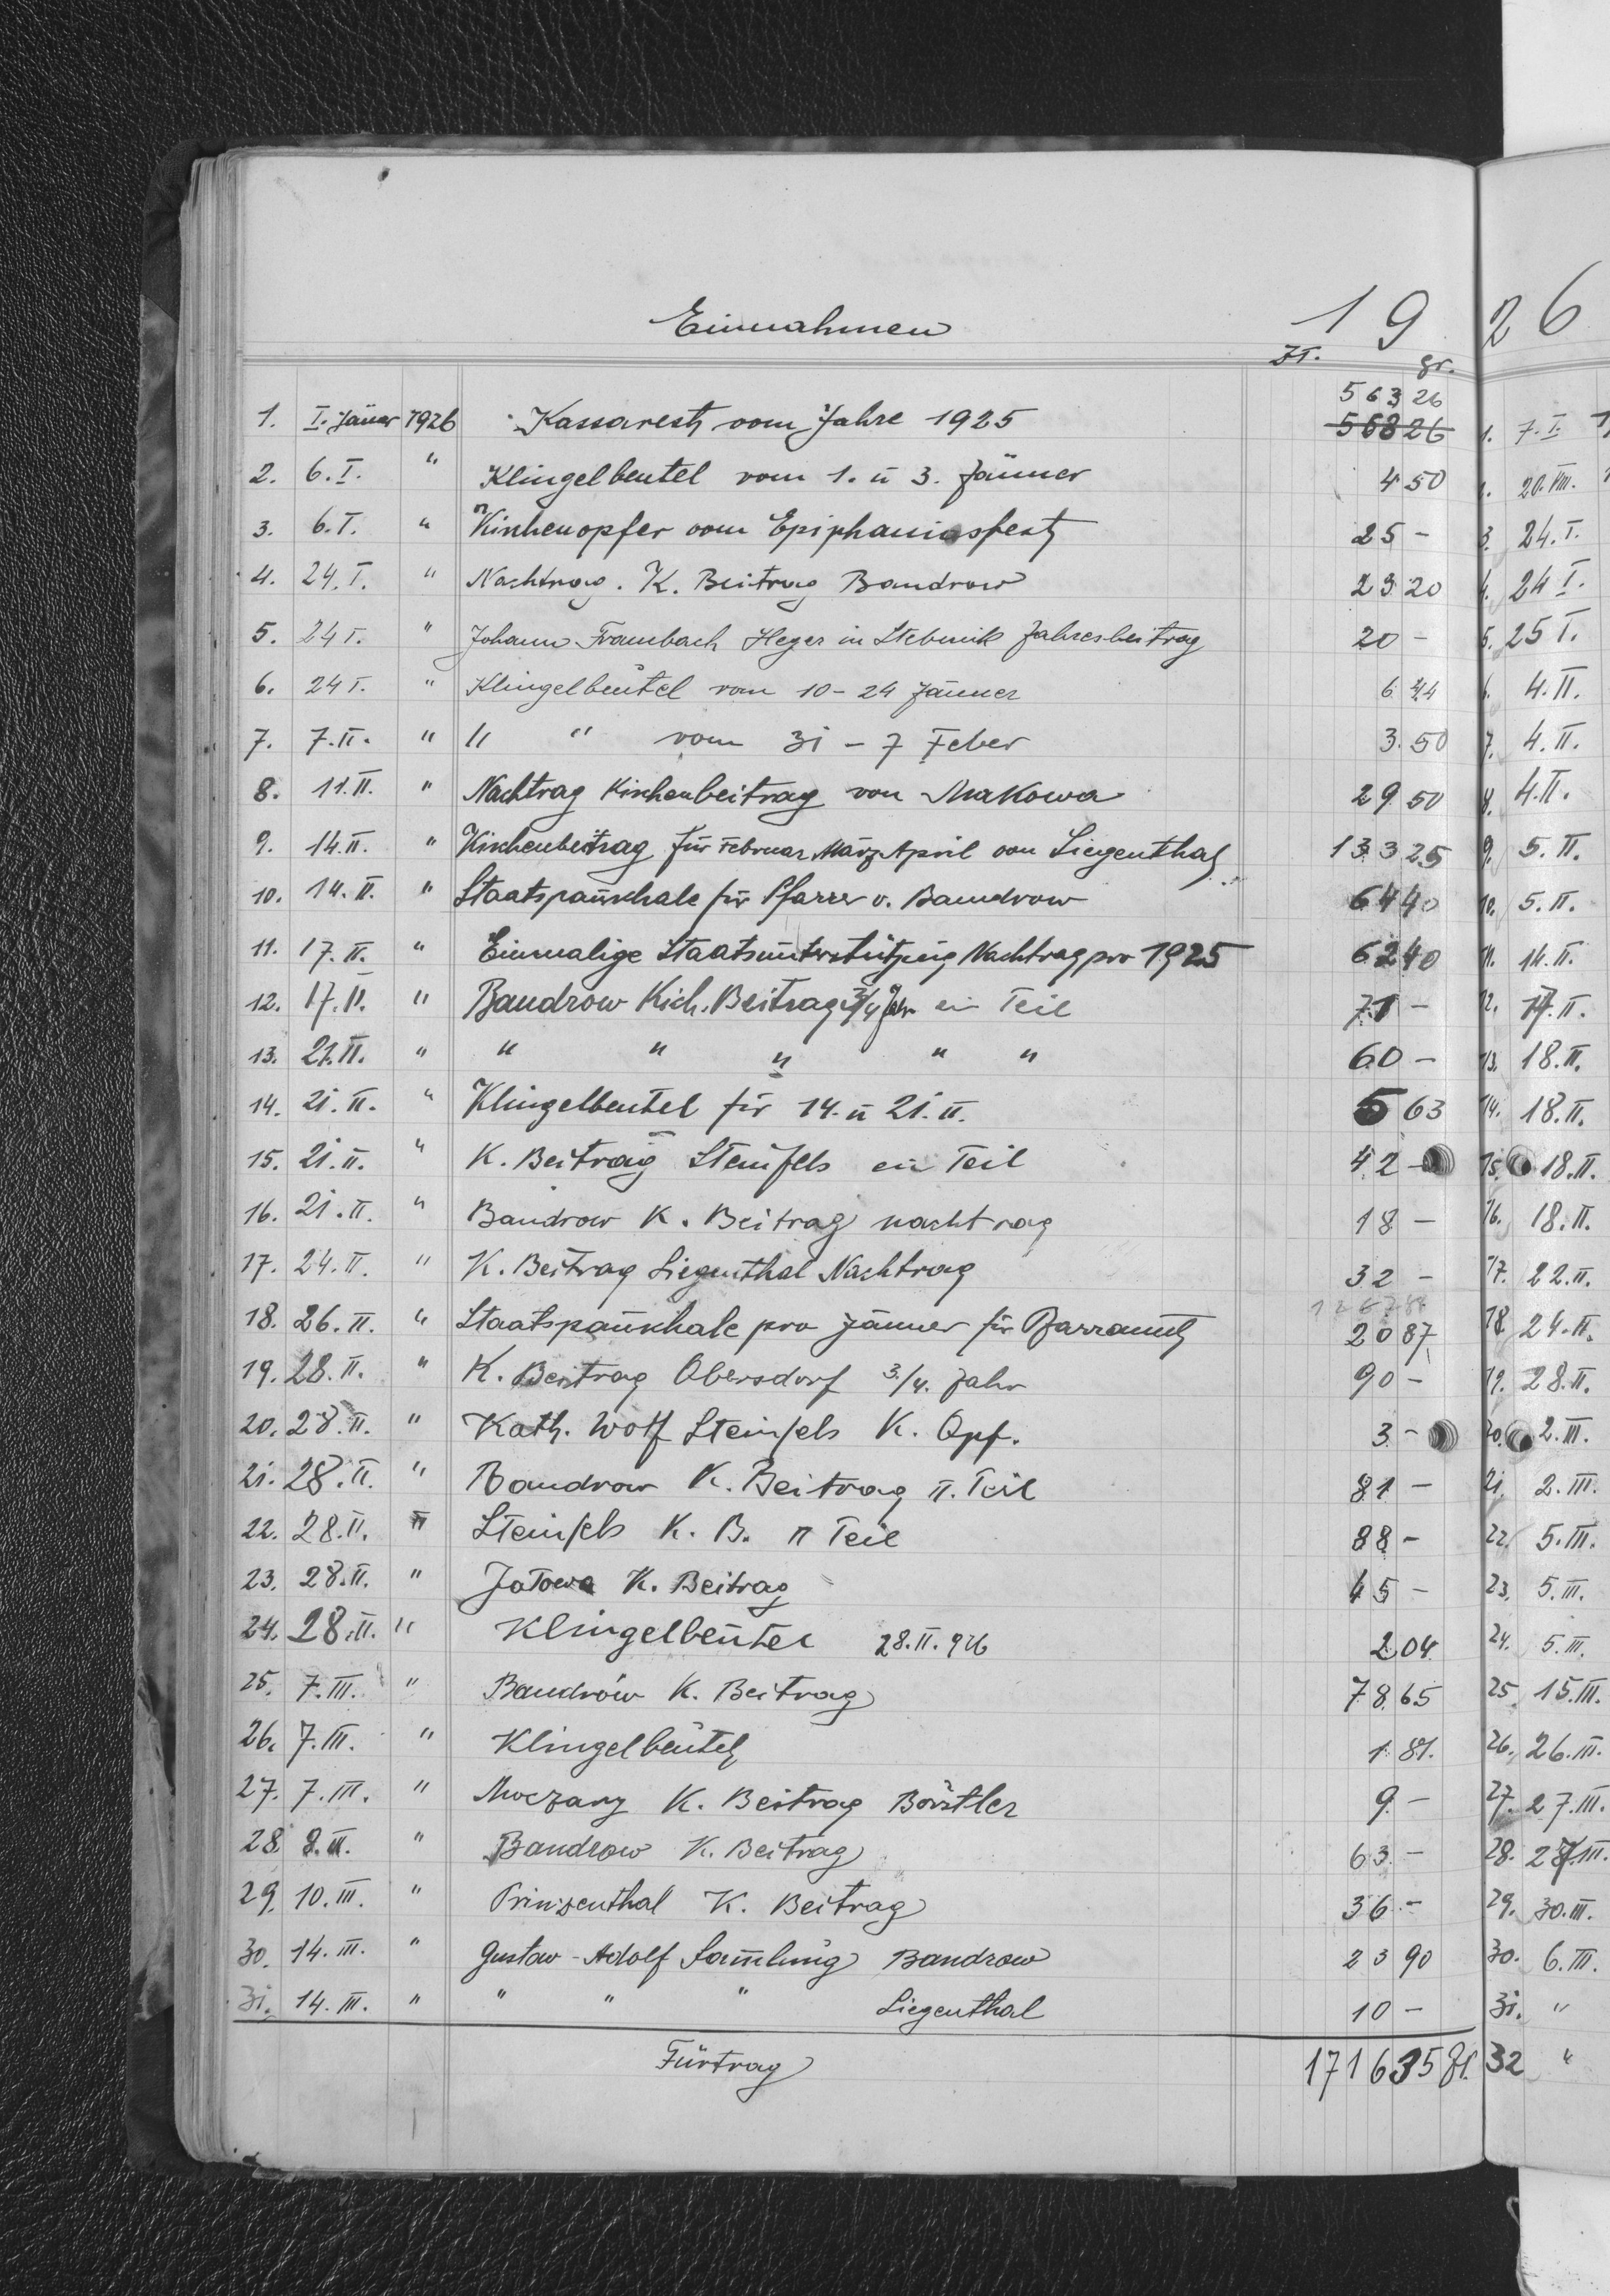 Einnahmen 19 26
Zł. gr.
563 26
1. I. Jäner 1926 Kassarest vom Jahre 1925 568 26 1. 7.I.
2. 6.I. " Klingelbeutel vom 1. u 3. Jänner 4 50 20.
3. 6.I. " Kirchenopfer vom Epiphaniasfest 25 - 3. 24.I.
4. 24.I. " Nachtrag. K. Beitrag Bandrow 23 20 4. 24 I.
5. 24 I. " Johann Trambach Heger in Stebnik Jahresbeitrag 20 - 5. 25 I.
6. 24 I. " Klingelbeutel vom 10-24 Jänner 6 44 6. 4.II.
7. 7.II. " " " vom 31 - 7 Feber 3 50 7. 4.II.
8. 11.II. " Nachtrag Kirchenbeitrag von Makowa 29 50 8. 4.II.
9. 14.II. " Kirchenbeitrag für Februar März April von Siegenthal 133 25 9. 5.II.
10. 14.II. " Staatspauschale für Pfarrer v. Bandrow 64 40 10. 5.II.
11. 17.II. " Einmalige Staatsunterstützung Nachtrag pro 1925 62 40 11. 14.II.
12. 17.II. " Bandrow Kich. Beitrag 3/4 Jahr ein Teil 71 - 12. 17.II.
13. 21.II. " " " " " " 60 - 13. 18.II.
14. 21.II. " Klingelbeutel für 14. u 21.II. 5 63 14. 18.II.
15. 21.II. " K. Beitrag Steinfels ein Teil 42 - 15. 18.II.
16. 21.II. " Bandrow K. Beitrag nachtrag 18 - 16. 18.II.
17. 24.II. " K. Beitrag Siegenthal Nachtrag 32 - 17. 22.II.
18. 26.II. " Staatspauschale pro Jänner für Pfarramt 20 87 18. 24.II.
19. 28.II. " K. Beitrag Obersdorf 3/4. Jahr 90 - 19. 28.II.
20. 28.II. " Kath. Wolf Steinfels K. Opf. 3 - 20. 2.III.
21. 28.II. " Bandrow K. Beitrag II. Teil 81 - 21. 2.III.
22. 28.II. " Steinfels K. B. II Teil 88 - 22. 5.III.
23. 28.II. " Jatowa K. Beitrag 45 - 23. 5.III.
24. 28.II. " Klingelbeutel 28.II.926 2 04 24. 5.III.
25. 7.III. " Bandrów K. Beitrag 78 65 25. 15.III.
26. 7.III. " Klingelbeutel 1 81. 26. 26.III.
27. 7.III. " Moczary K. Beitrag Börstler 9 - 27. 27.III.
28. 8.III. " Bandrow K. Beitrag 63 - 28. 27.III.
29. 10.III. " Prinzenthal K. Beitrag 36 - 29. 30.III.
30. 14.III. " Gustav-Adolf Sam̄lung Bandrow 23 90 30. 6.III.
31. 14.III. " " " " Siegenthal 10 - 31. "
Fürtrag 1716 35 32 "